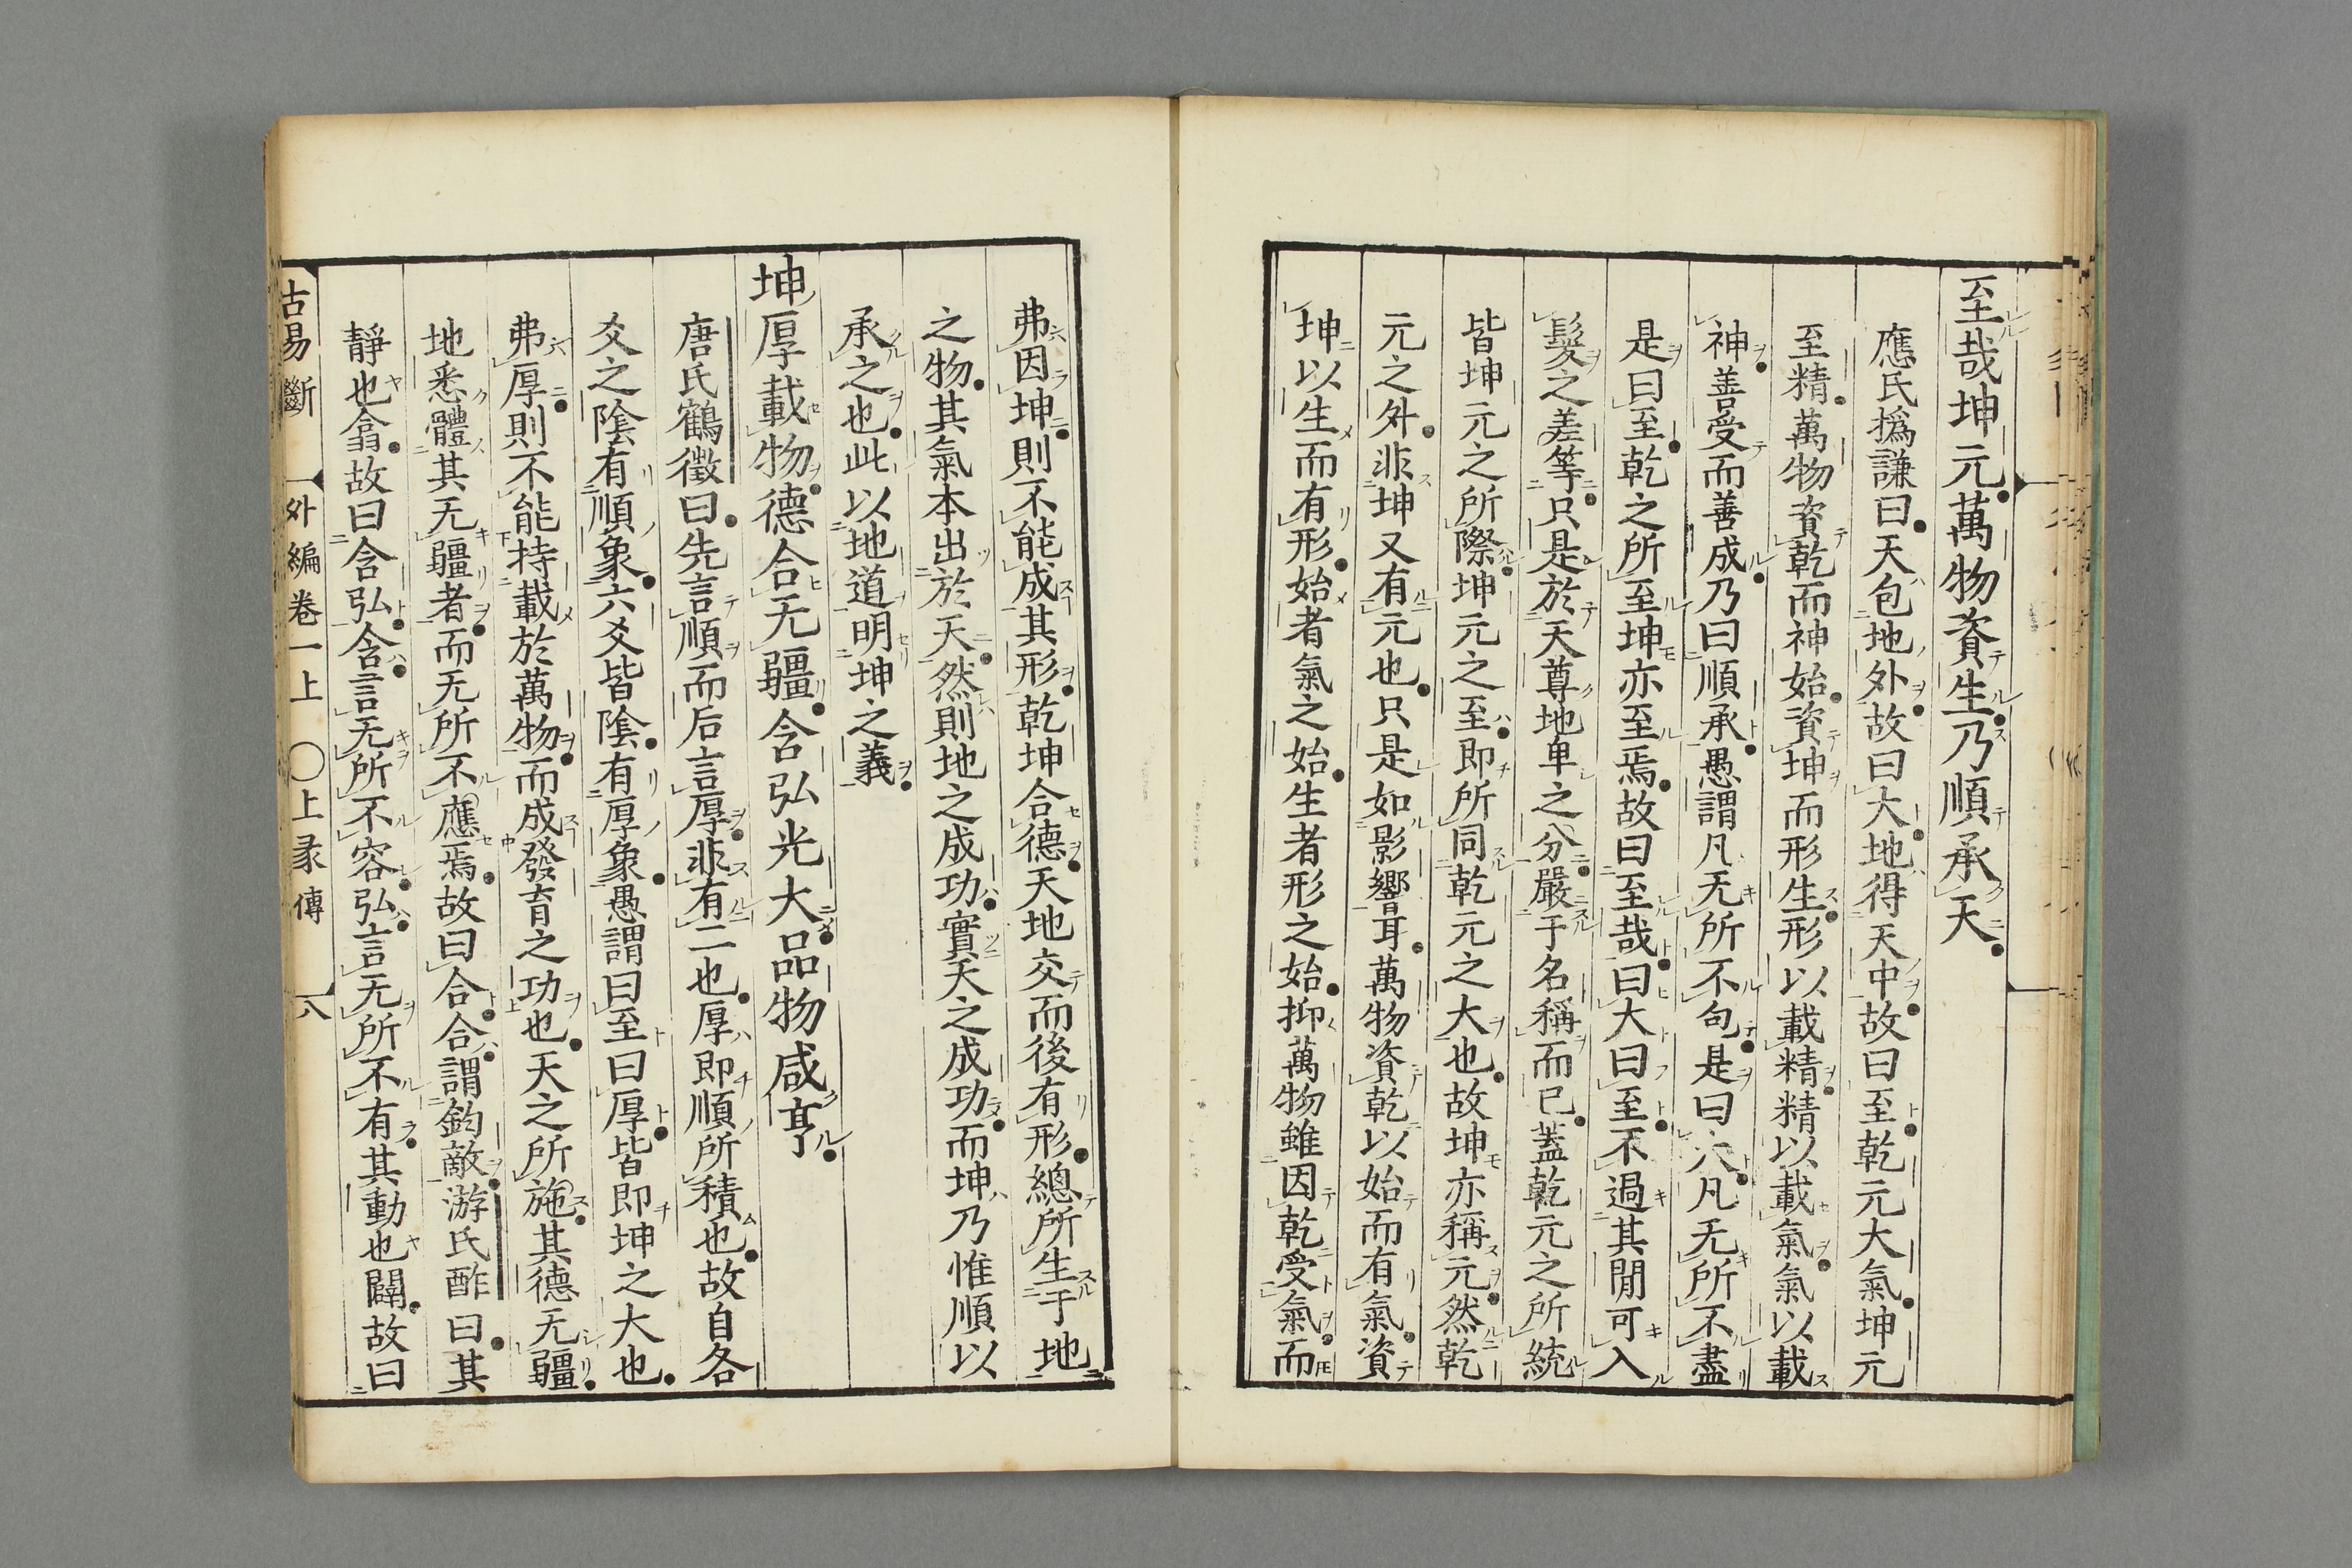 至哉坤元萬物資生乃順承天
應氏撝謙曰天包地外故曰大地得天中故曰至乾元大氣坤元
至精萬物資乾而神始資坤而形生形以載精精以載氣氣以載
神善受而善成乃曰順承愚謂凡无所不句是曰大凡无所不盡
是曰至乾之所至坤亦至焉故曰至哉曰大曰至不過其間可入
髮之差等只是於天尊地卑之分嚴于名稱而已蓋乾元之所統
皆坤元之所際坤元之至即所同乾元之大也故坤亦稱元然乾
元之外非坤又有元也只是如影響耳萬物資乾以始而有氣資
坤以生而有形始者氣之始生者形之始抑萬物雖因乾受氣而
弗因坤則不能成其形乾坤合德天地交而後有形總所生于地
之物其氣本出於天然則地之成功實天之成功而坤乃惟順以
承之也此以地道明坤之義
坤厚載物德合无疆含弘光大品物咸亨
唐氏鶴徵曰先言順而后言厚非有二也厚即順所積也故自各
爻之陰有順象六爻皆陰有厚象愚謂曰至曰厚皆即坤之大也
弗厚則不能持載於萬物而成發育之功也天之所施其德无疆
地悉體其无疆者而无所不應焉故曰合合謂鈞敵游氏酢曰其
靜也翕故曰含弘含言无所不容弘言无所不有其動也闢故曰
古易斷 外編卷一上 〇上彖傳 八